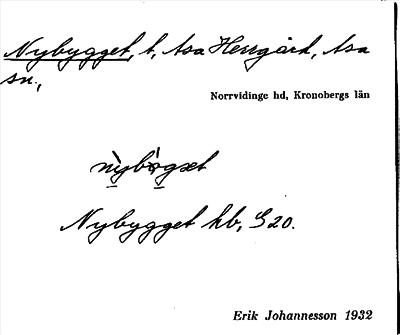 Nybygget, t, Asa Herrgård, Asa
sn.,
Norrvidinge hd, Kronobergs län
Nybygget hb, G 20.
Erik Johannesson 1932